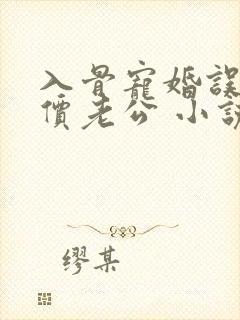 入骨寵婚誤
價老公 小說
缪某